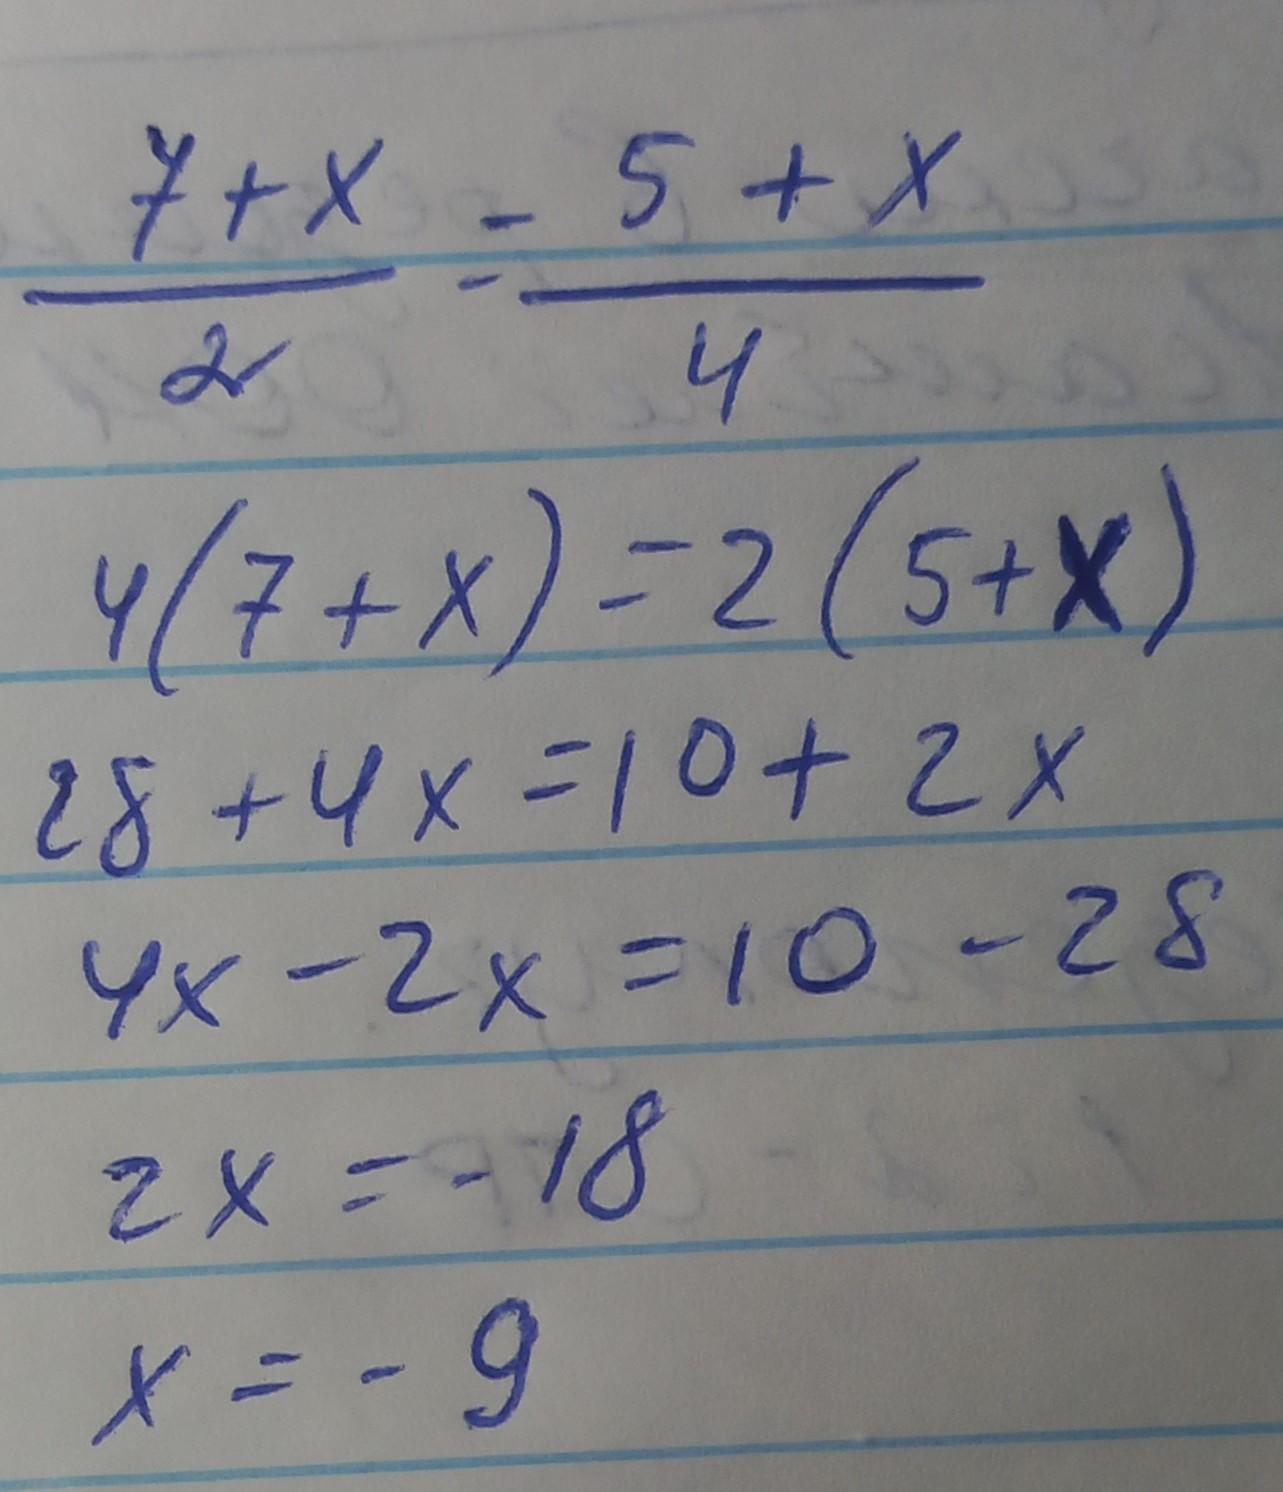 7 + x / 2 = 5 + x / 4
4(7 + x) = 2(5 + x)
28 + 4x = 10 + 2x
4x - 2x = 10 - 28
2x = -18
x = -9